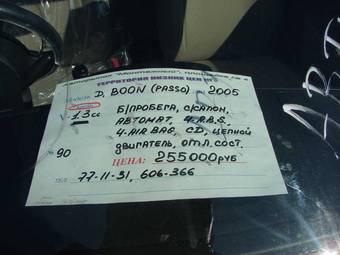 ТЕРРИТОРИЯ НИЗКИХ ЦЕН
D. BOON (PASSO) 2005
1.3 cc Б/ПРОБЕГА, С/САЛОН,
АВТОМАТ, A.B.S.
4-AIR BAG, CD, ЦЕПНОЙ
90 ДВИГАТЕЛЬ, ОТЛ. СОСТ.
ЦЕНА: 255000 РУБ
77-11-31, 606-366
ART